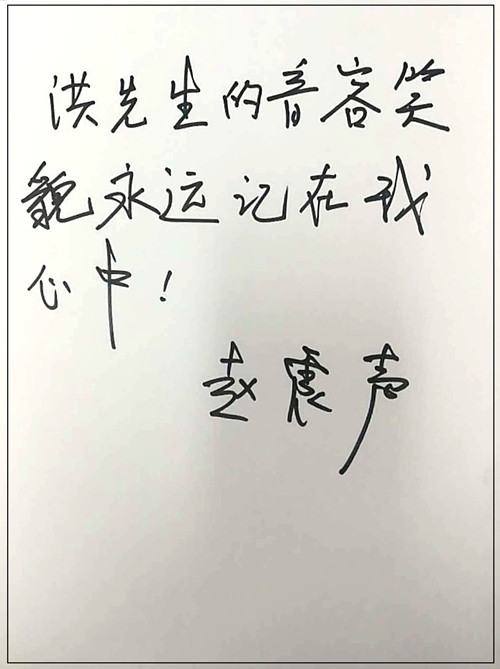 洪先生的音容笑
貌永远记在我
心中！
赵震声